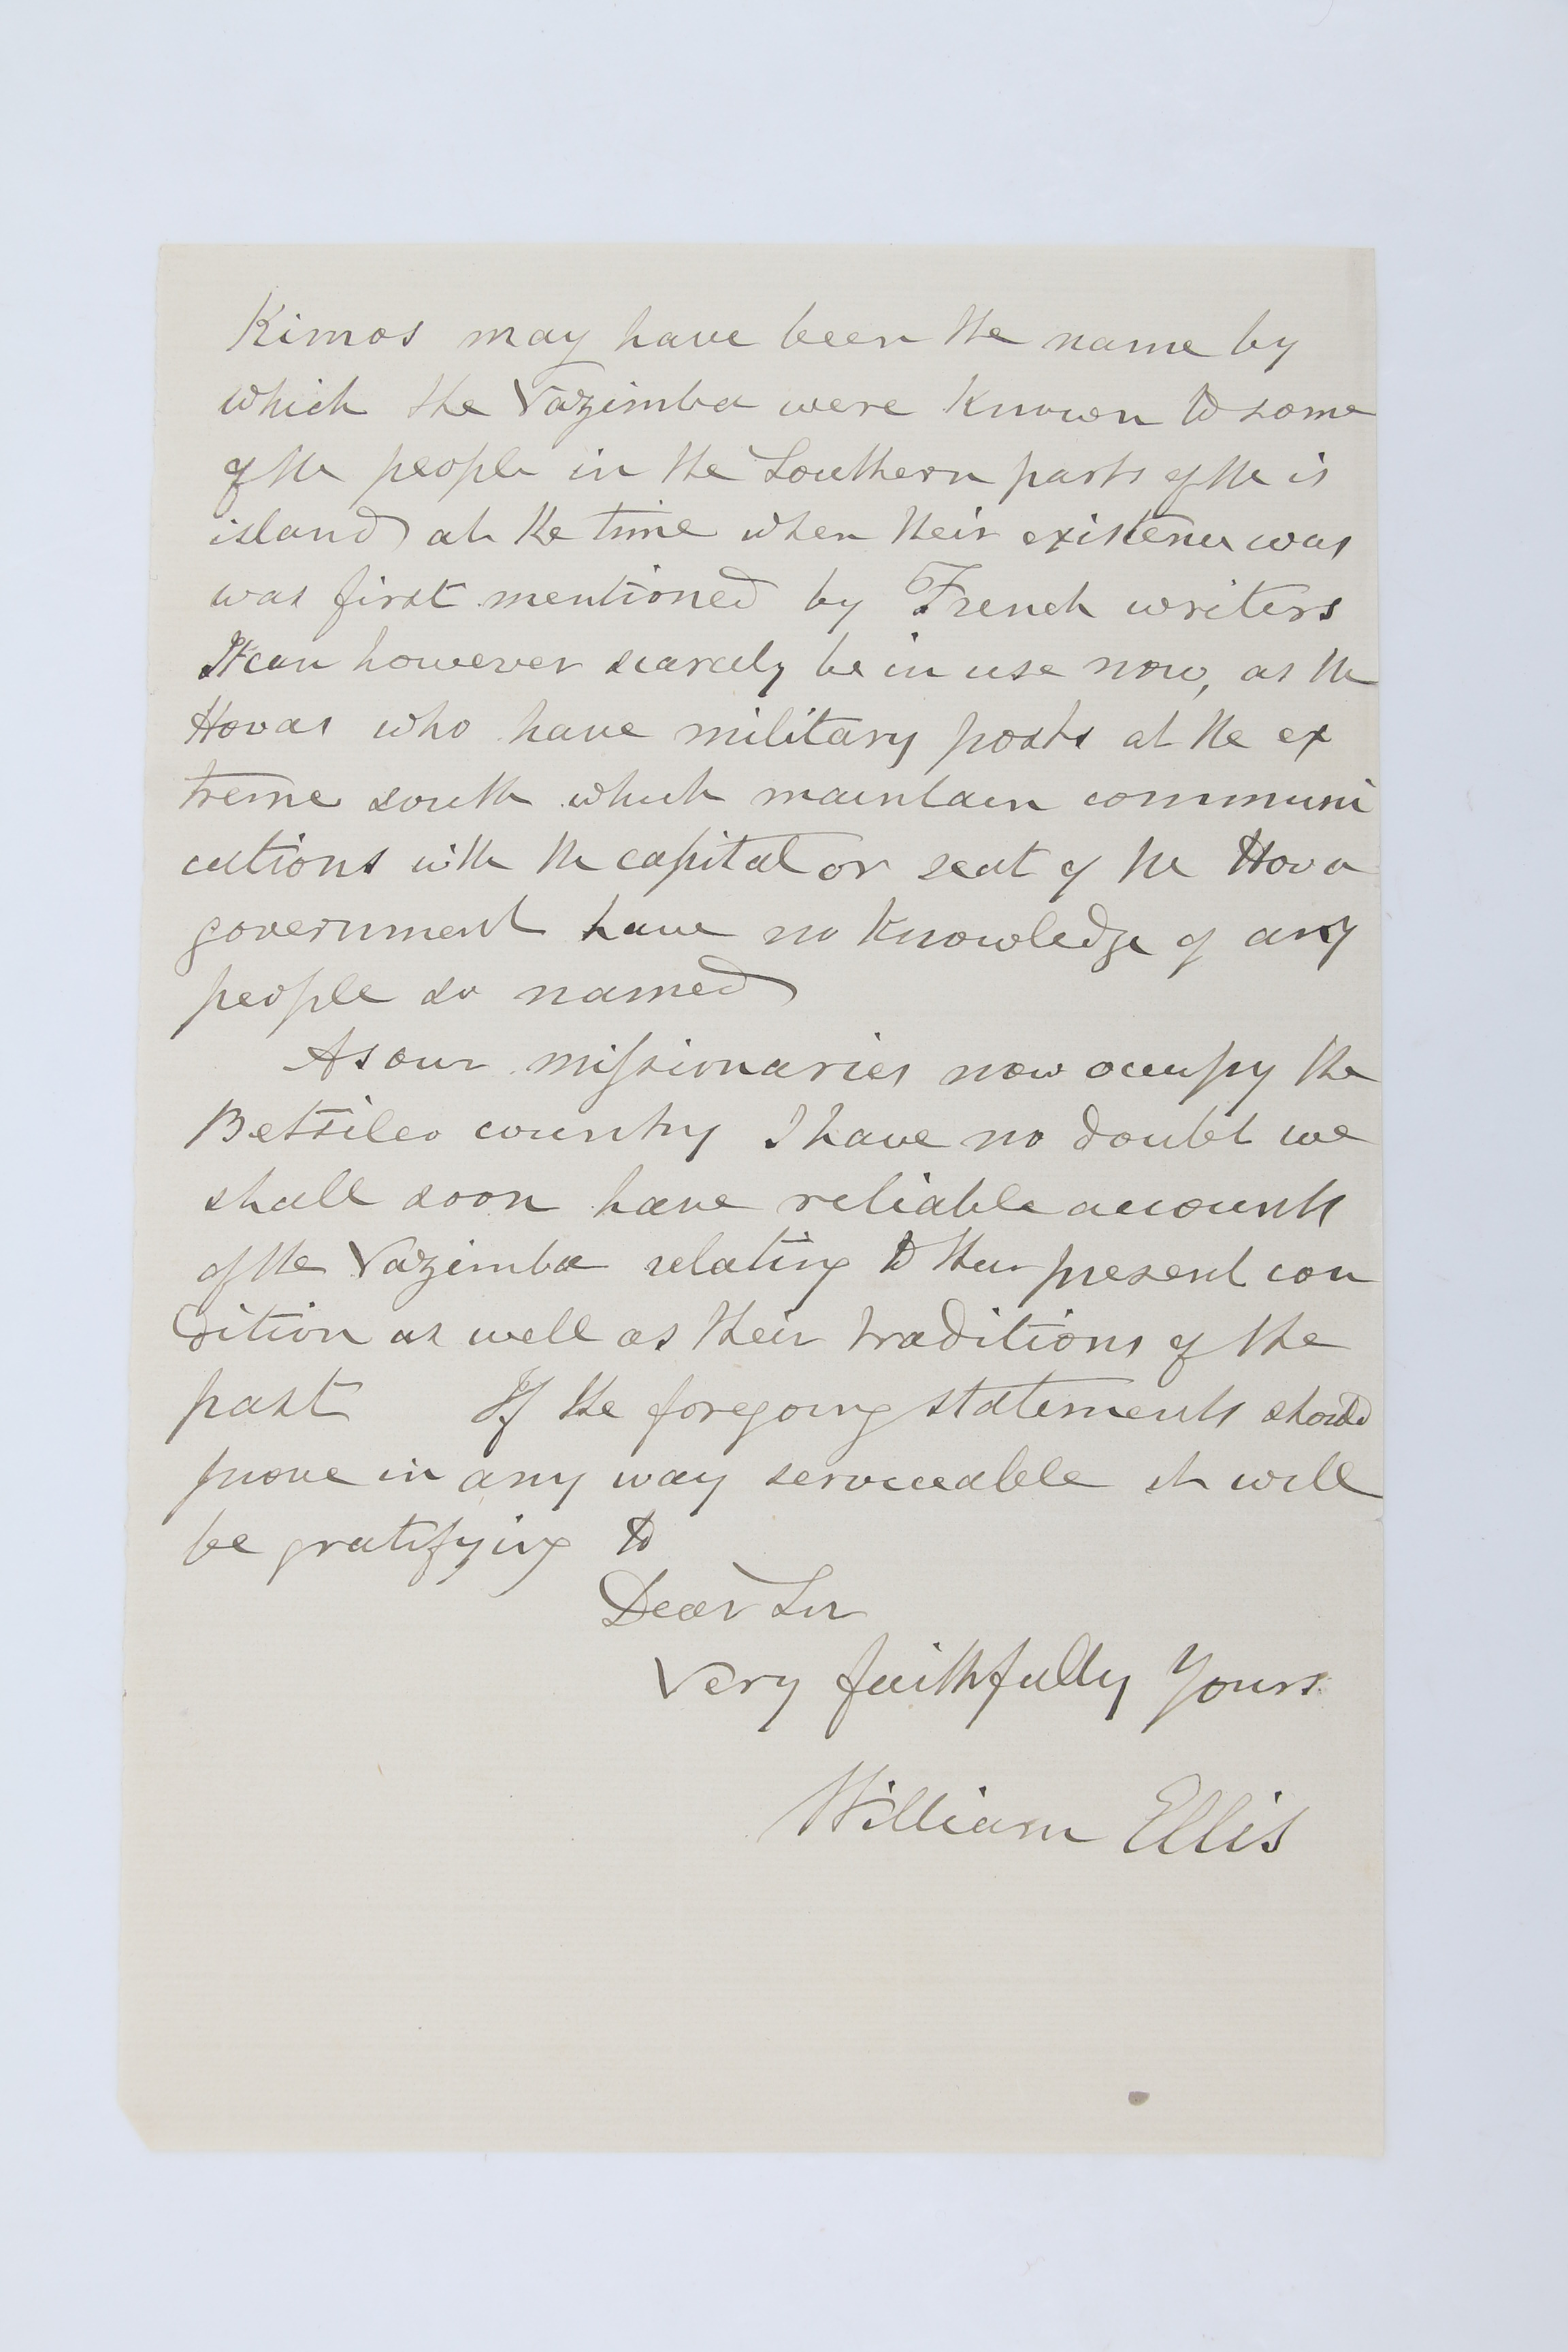 Kimos may have been the name by
which the Vazimba were known to some
of the people in the Southern parts of the is
island at the time when their existence was
was first mentioned by French writers
It can however scarcely be in use now, as the
Hovas who have military posts at the ex
treme south which maintain communi
cations with the capital or seat of the Hova
government have no knowledge of any
people so named
As our missionaries now occupy the
Betsileo country I have no doubt we
shall soon have reliable accounts
of the Vazimba relating to their present con
dition as well as their traditions of the
past If the foregoing statements should
prove in any way serviceable it will
be gratifying to
Dear Sir
Very faithfully Yours
William Ellis